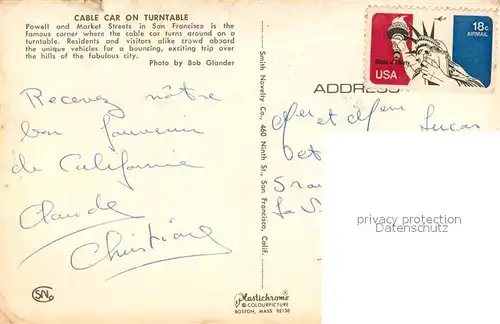 CABLE CAR ON TURNTABLE
Powell and Market Streets in San Francisco is the
famous corner where the cable car turns around on a
turntable. Residents and visitors alike crowd aboard
the unique vehicles for a bouncing, exciting trip over
the hills of the fabulous city.
Photo by Bob Glander
Recevez nôtre
bon souvenir
de Californie
Claude
Christiane
SN
Smith Novelty Co., 460 Ninth St., San Francisco, Calif.
Plastichrome®
© COLOURPICTURE
BOSTON, MASS. 02130
18c
AIRMAIL
USA
ADDRESS
et Lucas
privacy protection
Datenschutz